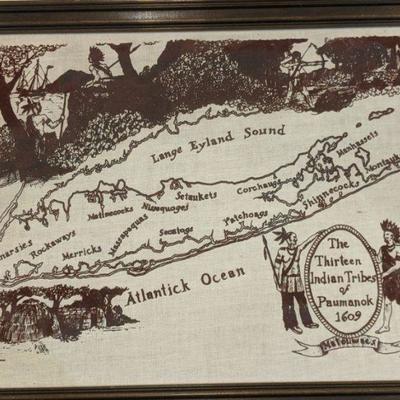 Lange Eyland Sound
Manhassets
Montauks
Corchaugs
Shinnecocks
Setaukets
Nissequogs
Matinecocks
Patchogs
Secatogs
Massapequas
Merricks
Rockaways
narsies
Atlantick Ocean
The
Thirteen
Indian Tribes
of
Paumanok
1609